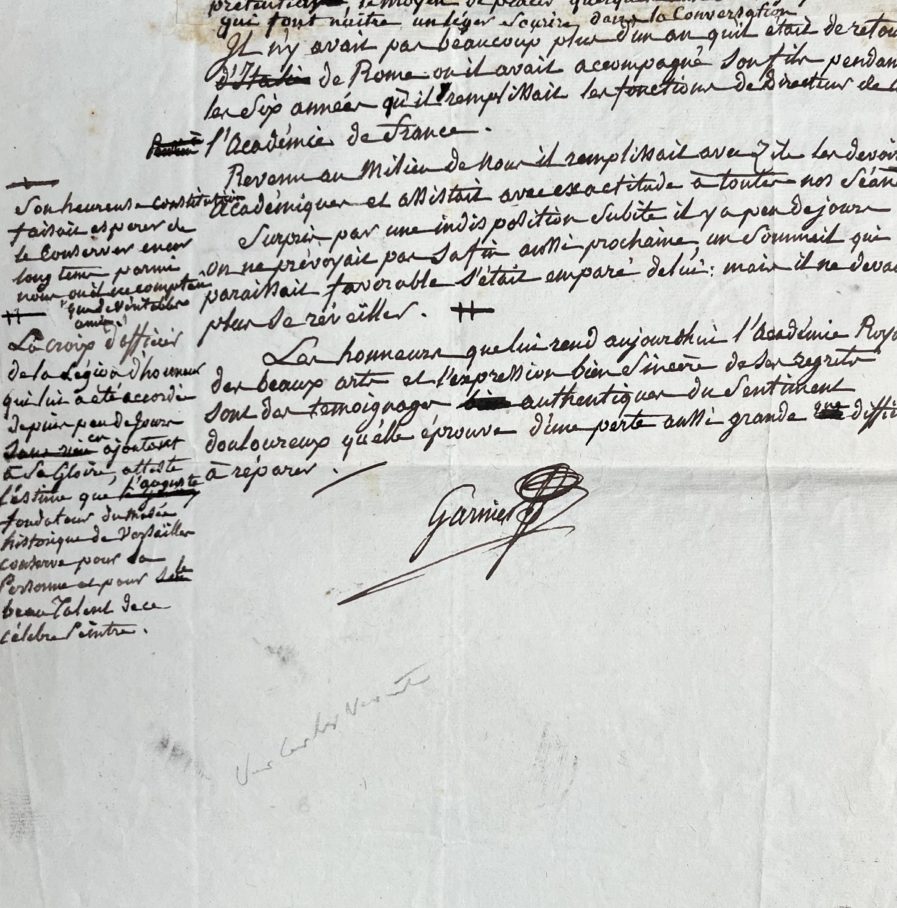 prétention, le moyen de placer quelques
qui font naître un léger sourire dans la Conversation
Il n'y avait pas beaucoup plus d'un an qu'il était de retou
d'Italie de Rome ou il avait accompagné son fils pendan
les six années qu'il remplissait les fonctions de Directeur de
l'Académie de france.
Revenu au Milieu de nous il remplissait avec zêle les devoir
Académiques et assistait avec exactitude à toutes nos Séan
Surpris par une indisposition subite il y a peu de jours
on ne prévoyait pas sa fin aussi prochaine, un Sommeil qui
paraissait favorable s'était emparé de lui: mais il ne deva
plus se réveiller.
Les honneurs que lui rend aujourdhui l'Académie Roya
des beaux arts et l'expression bien sincère de ses regrets
sont des temoignages authentiques du Sentiment
douloureux qu'elle éprouve d'une perte aussi grande diffi
à réparer.
Garnier
Son heureuse constitution
faisait esperer de
le Conserver encor
long tems parmi
nous ou il ne comptait
que de véritables
amis
La croix d'officier
de la Légion d'honneur
qui lui a été accordé
depuis peu de jours
ajoutant
à Sa Gloire, atteste
l'éstime que l'auguste
fondateur du Musée
historique de Versailles
conserve pour Sa
Personne et pour le
beau Talent de ce
célèbre Peintre.
Carles Vernet